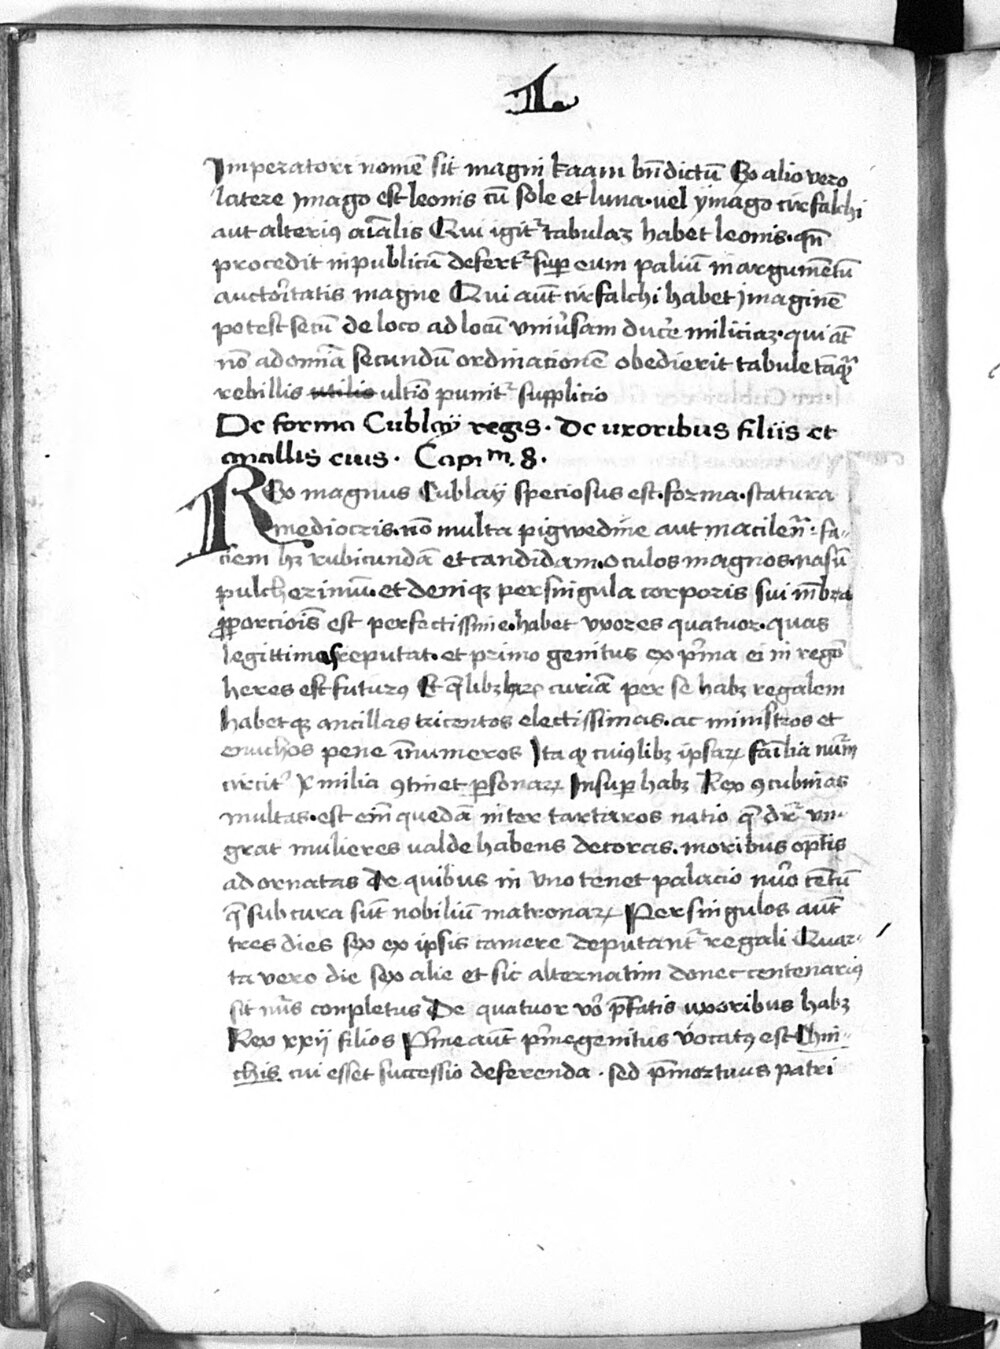 .1.
Imperatori nomē sit magni kaam bn̄dictū Ex alio vero
latere ymago est leonis cū sole et luna · uel ymago cirfalchi
aut alterius aīalis Qui igit᷑ tabulaꝫ habet leonis · qn̄
procedit in publicū defert᷑ suꝑ eum paliū in argumētū
auctor̄itatis magne Qui aūt cirfalchi habet ymaginē
potest secū de loco ad locū vniūsam ducēe miliciaꝫ · qui āt
nō ad omīa secundū ordinacionē obedierit tabule tāqᷓ
rebillis utilis ultīo punit᷑ supplicio
De forma Cublaÿ regis · De uxoribus filiis et
ancillis eius · Capiᵐ. 8 ·
REx magnus Cublaÿ speciosus est · forma · statura
mediocris · nō multa pigwedine aut macilen̄ · fa-
ciem hꝫ rubicundā et candidam · oculos magnos · nasū
pulcherimū · et deniqꝫ per singula corporis sui mēbra
ꝓporciois̄ est perfectissime · habet uxores quatuor · quas
legittimas reputat · et primo genitus ex pīma ei in regō
heres est futurꝰ Et q̄libꝫ haꝝ curiā per se habꝫ regalem
habetqꝫ ancillas tricentos electissimas · ac ministros et
enuchos pene īnumeros Ita ꝙ cuiꝰlibꝫ ipsaꝝ fāilia nūm
circit᷑ x milia ꝯtinet ꝑsonaꝝ Insuꝑ habꝫ Rex ꝯcubinas
multas · est eīm quedā inter tartaros natio q̄ dr̄ vn-
grat mulieres ualde habens decoras · moribus opt̄is
adornatas De quibus in vno tenet palacio nūo cētū
q̄ sub cura sūt nobiliū matronaꝝ Per singulos aūt
tres dies sex ex ipsis camere deputant᷑ regali Quar-
ta vero die sex alie et sic alternatim donec centenariꝰ
sit nūs completus De quatuor vō p̄fatis uxoribus habꝫ
Rex xxij filios Pīme aūt pīmegenitus vocatꝰ est Chin-
chis cui esset successio deferenda · sed p̄mortuus patri